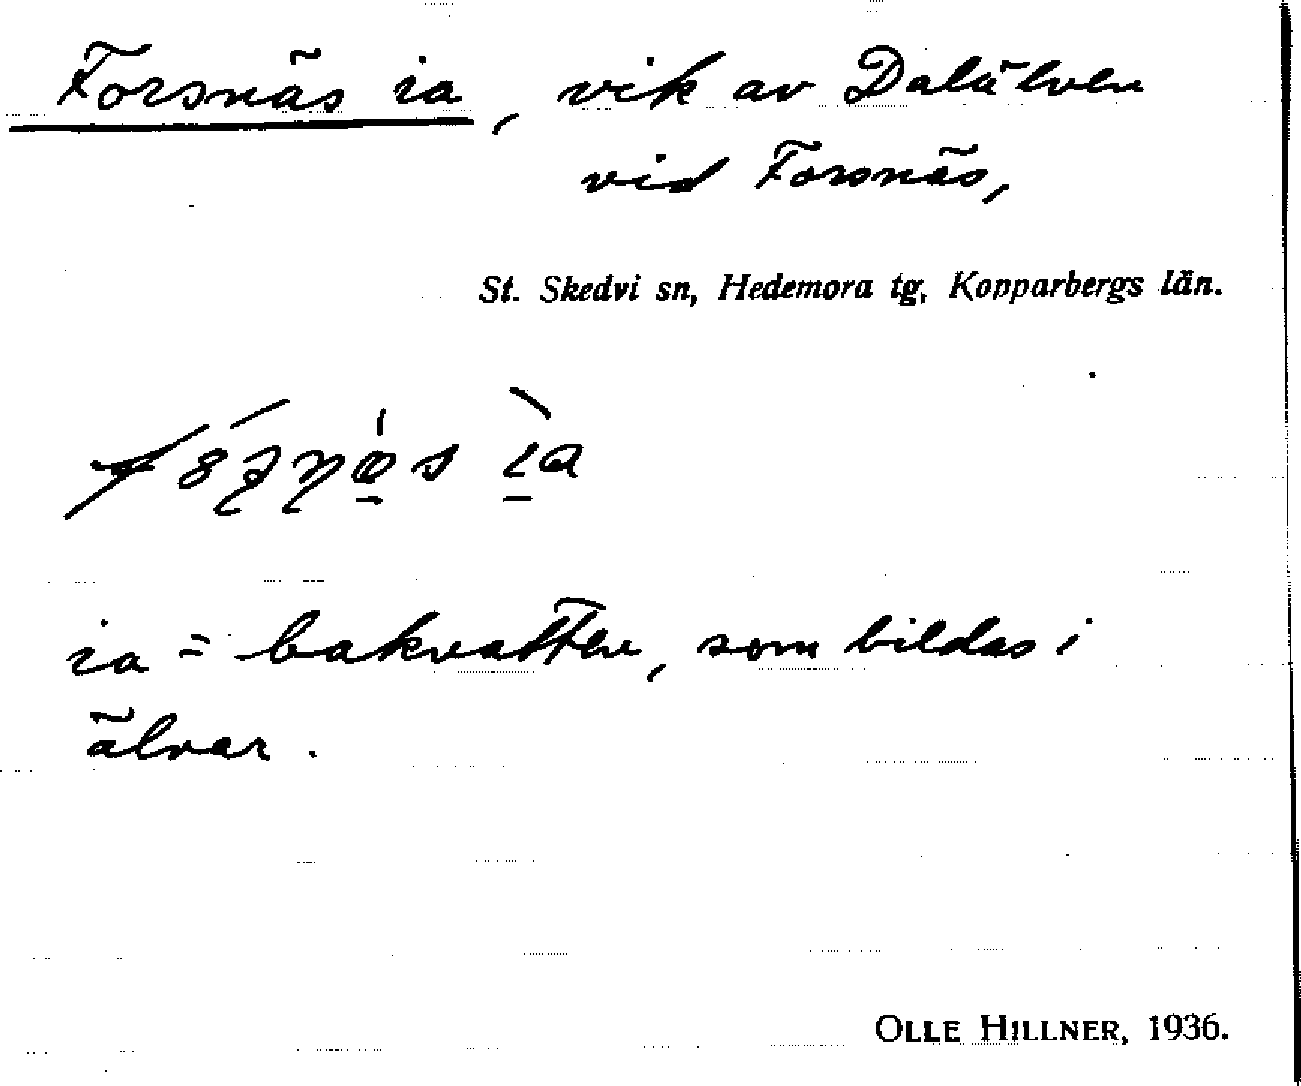 Forsnäs ia, vik av Dalälven
vid Forsnäs,
St. Skedvi sn, Hedemora tg, Kopparbergs län.
ia = bakvatten, som bildas i
älvar.
OLLE HILLNER, 1936.